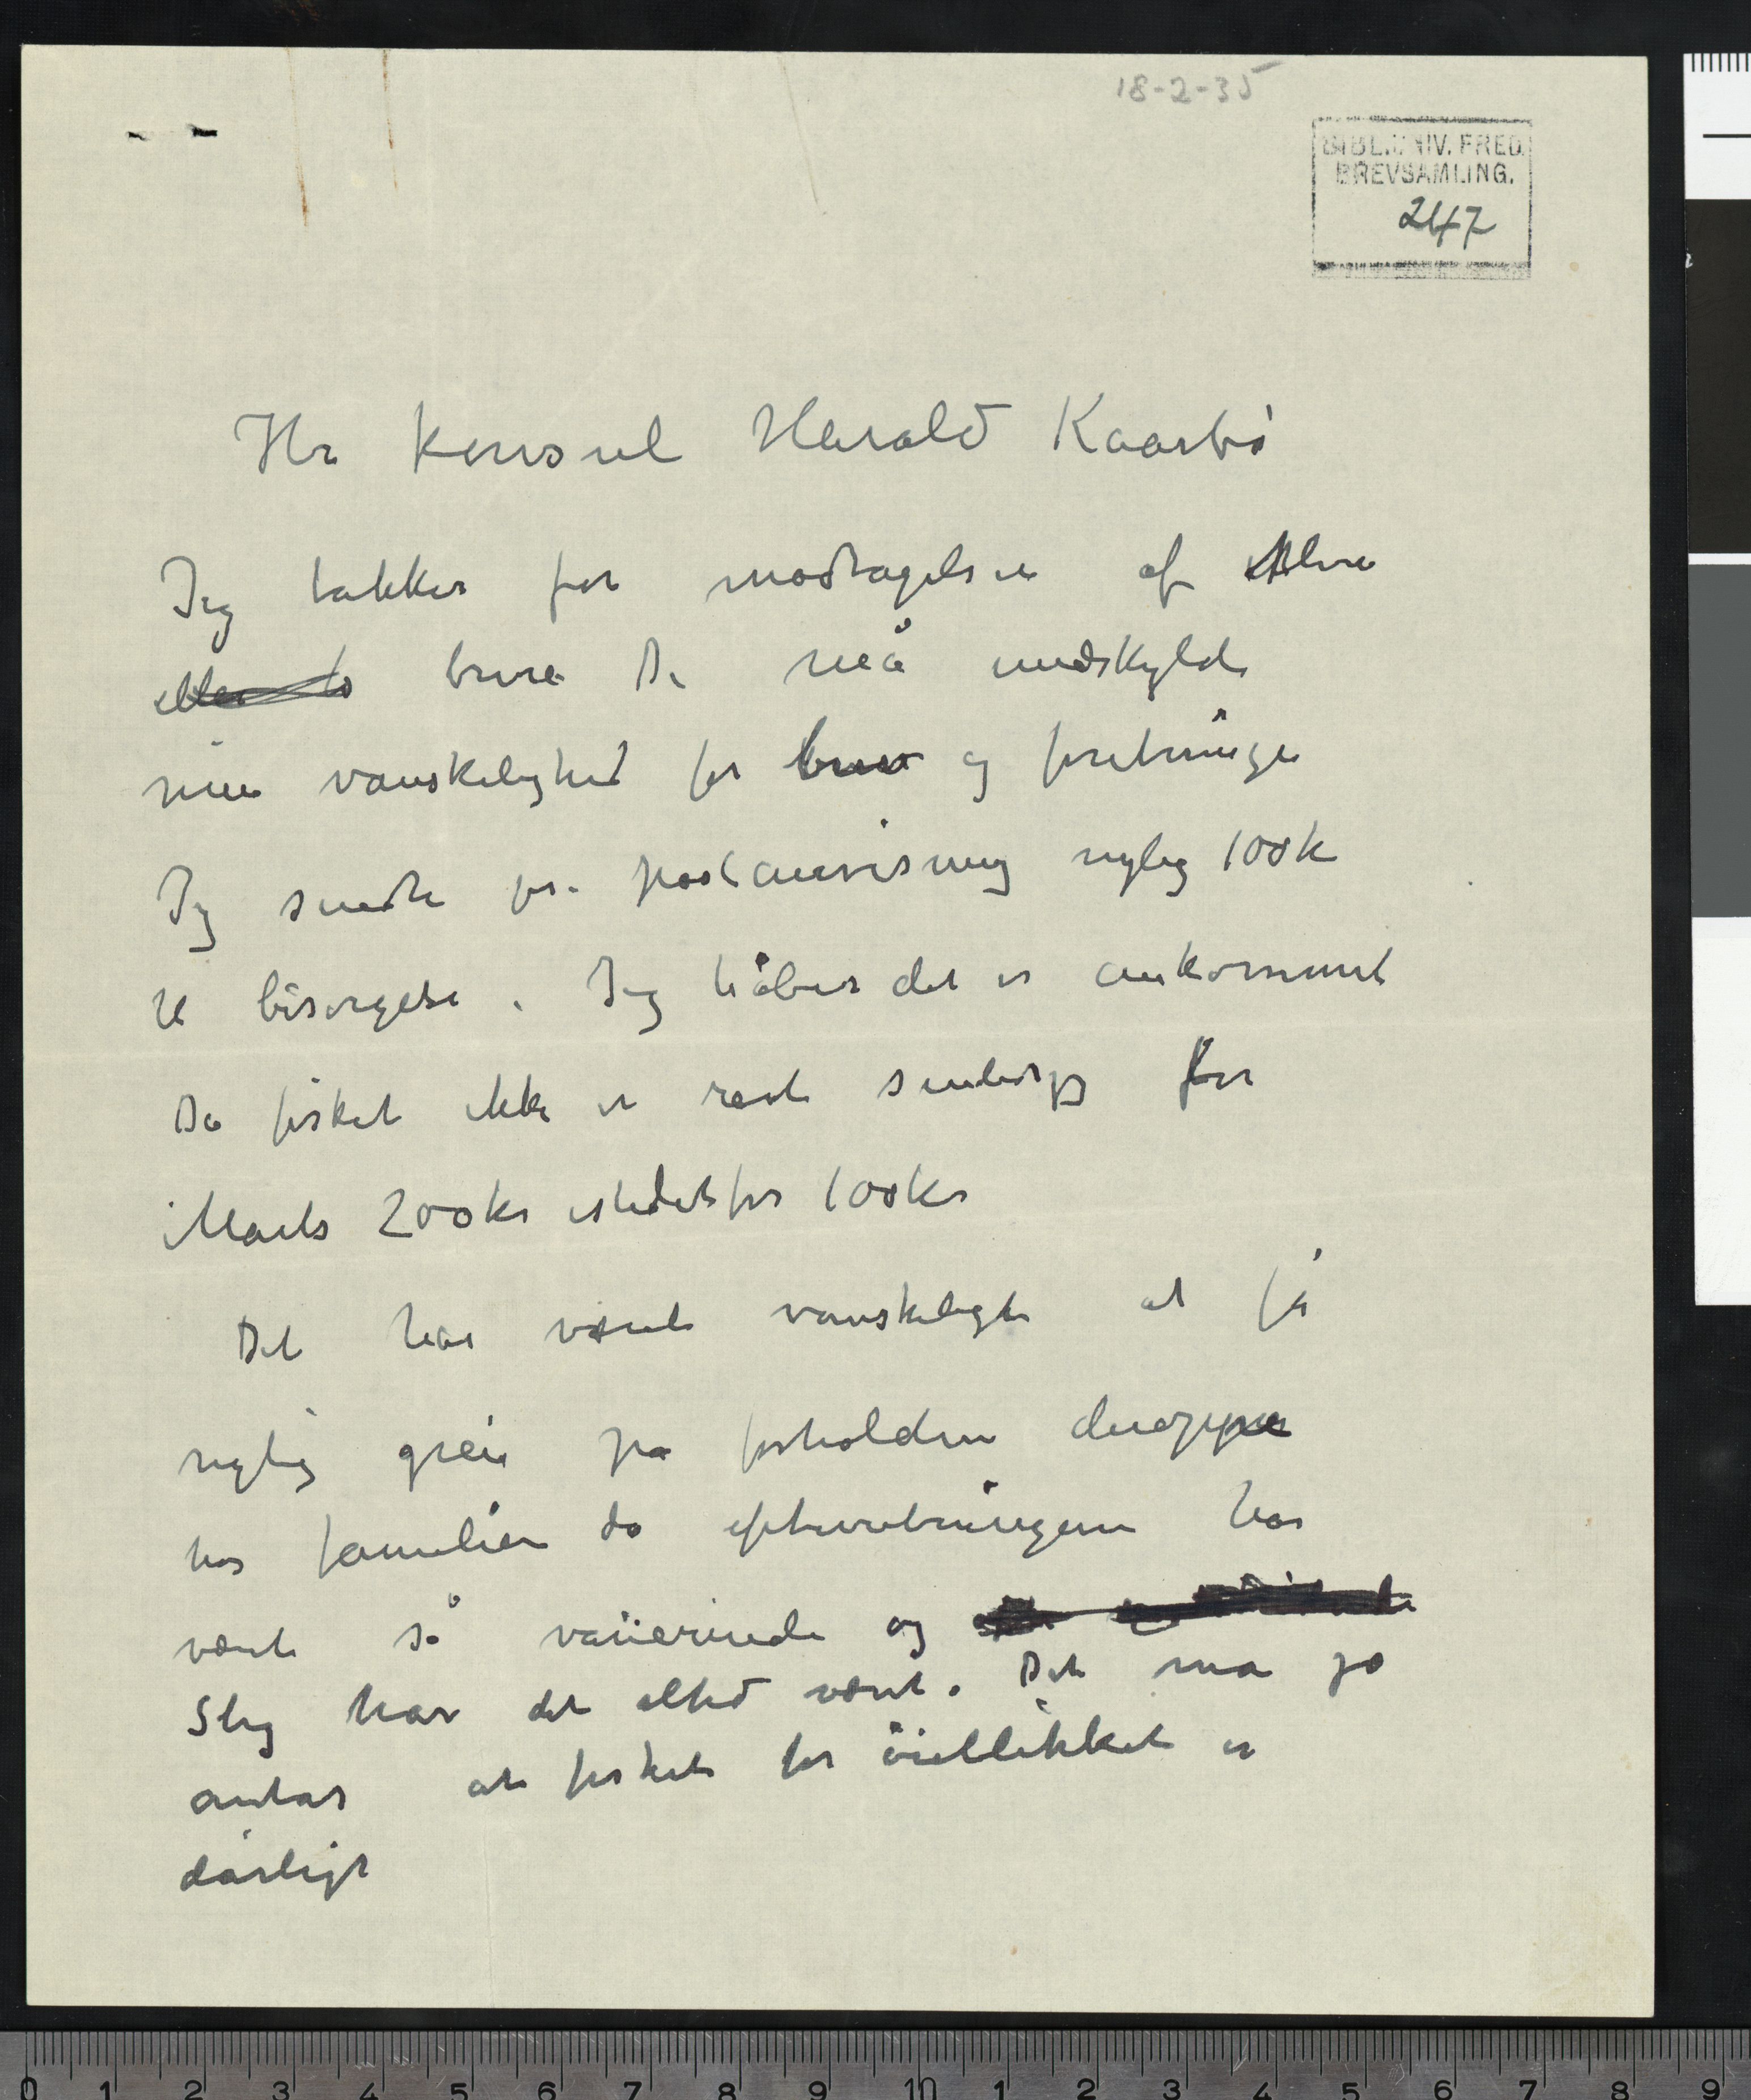 18-2-35
BIBL. UNIV. FRED.
BREVSAMLING.
247
Hr Konsul Harald Kaarbø
Jeg takker for modtagelsen af
breve De må undskylde
min vanskelighed for brev og forretninger
Jeg sendte pr. postanvisning nylig 100k
til besørgelse. Jeg håber det er ankommet
Da fisket ikke er
i Marts 200kr istedetfor 100kr
Det har været vanskeligt at få
rigtig greie på forholdene deroppe
hos familien da efterretningene har
været så varierende og
Slig har det altid været. Det må jo
antas at fisket for öieblikket er
dårligt